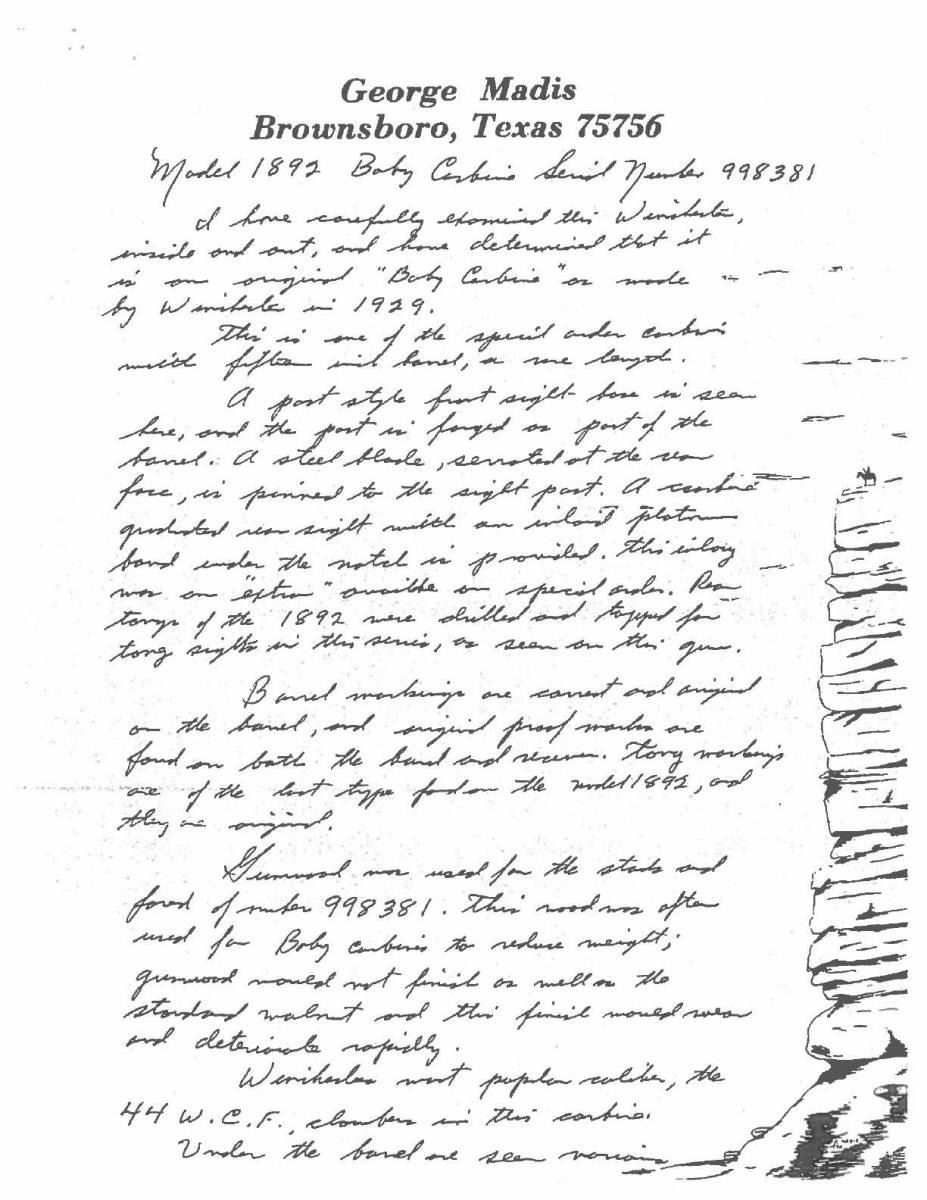 George Madis
Brownsboro, Texas 75756
Model 1892 Baby Carbine Serial Number 998381
I have carefully examined this Winchester,
inside and out, and have determined that it
is an original "Baby Carbine" as made
by Winchester in 1929.
This is one of the special order carbines
with fifteen inch barrel, a rare length.
A post style front sight base is seen
here, and the post is forged as part of the
barrel. A steel blade, serrated at the rear
face, is pinned to the sight post. A carbine
graduated rear sight with an inlaid platinum
band under the notch is provided. This inlay
was an "extra" available on special order. Rear
tangs of the 1892 were drilled and tapped for
tang sights in this series, as seen on this gun.
Barrel markings are correct and original
on the barrel, and original proof marks are
found on both the barrel and receiver. Tang markings
are of the last type found on the model 1892, and
they are original.
Gumwood was used for the stock and
forend of number 998381. This wood was often
used for Baby carbines to reduce weight;
gumwood would not finish as well as the
standard walnut and this finish would wear
and deteriorate rapidly.
Winchesters most popular caliber, the
44 W.C.F., chambers in this carbine.
Under the barrel are seen various